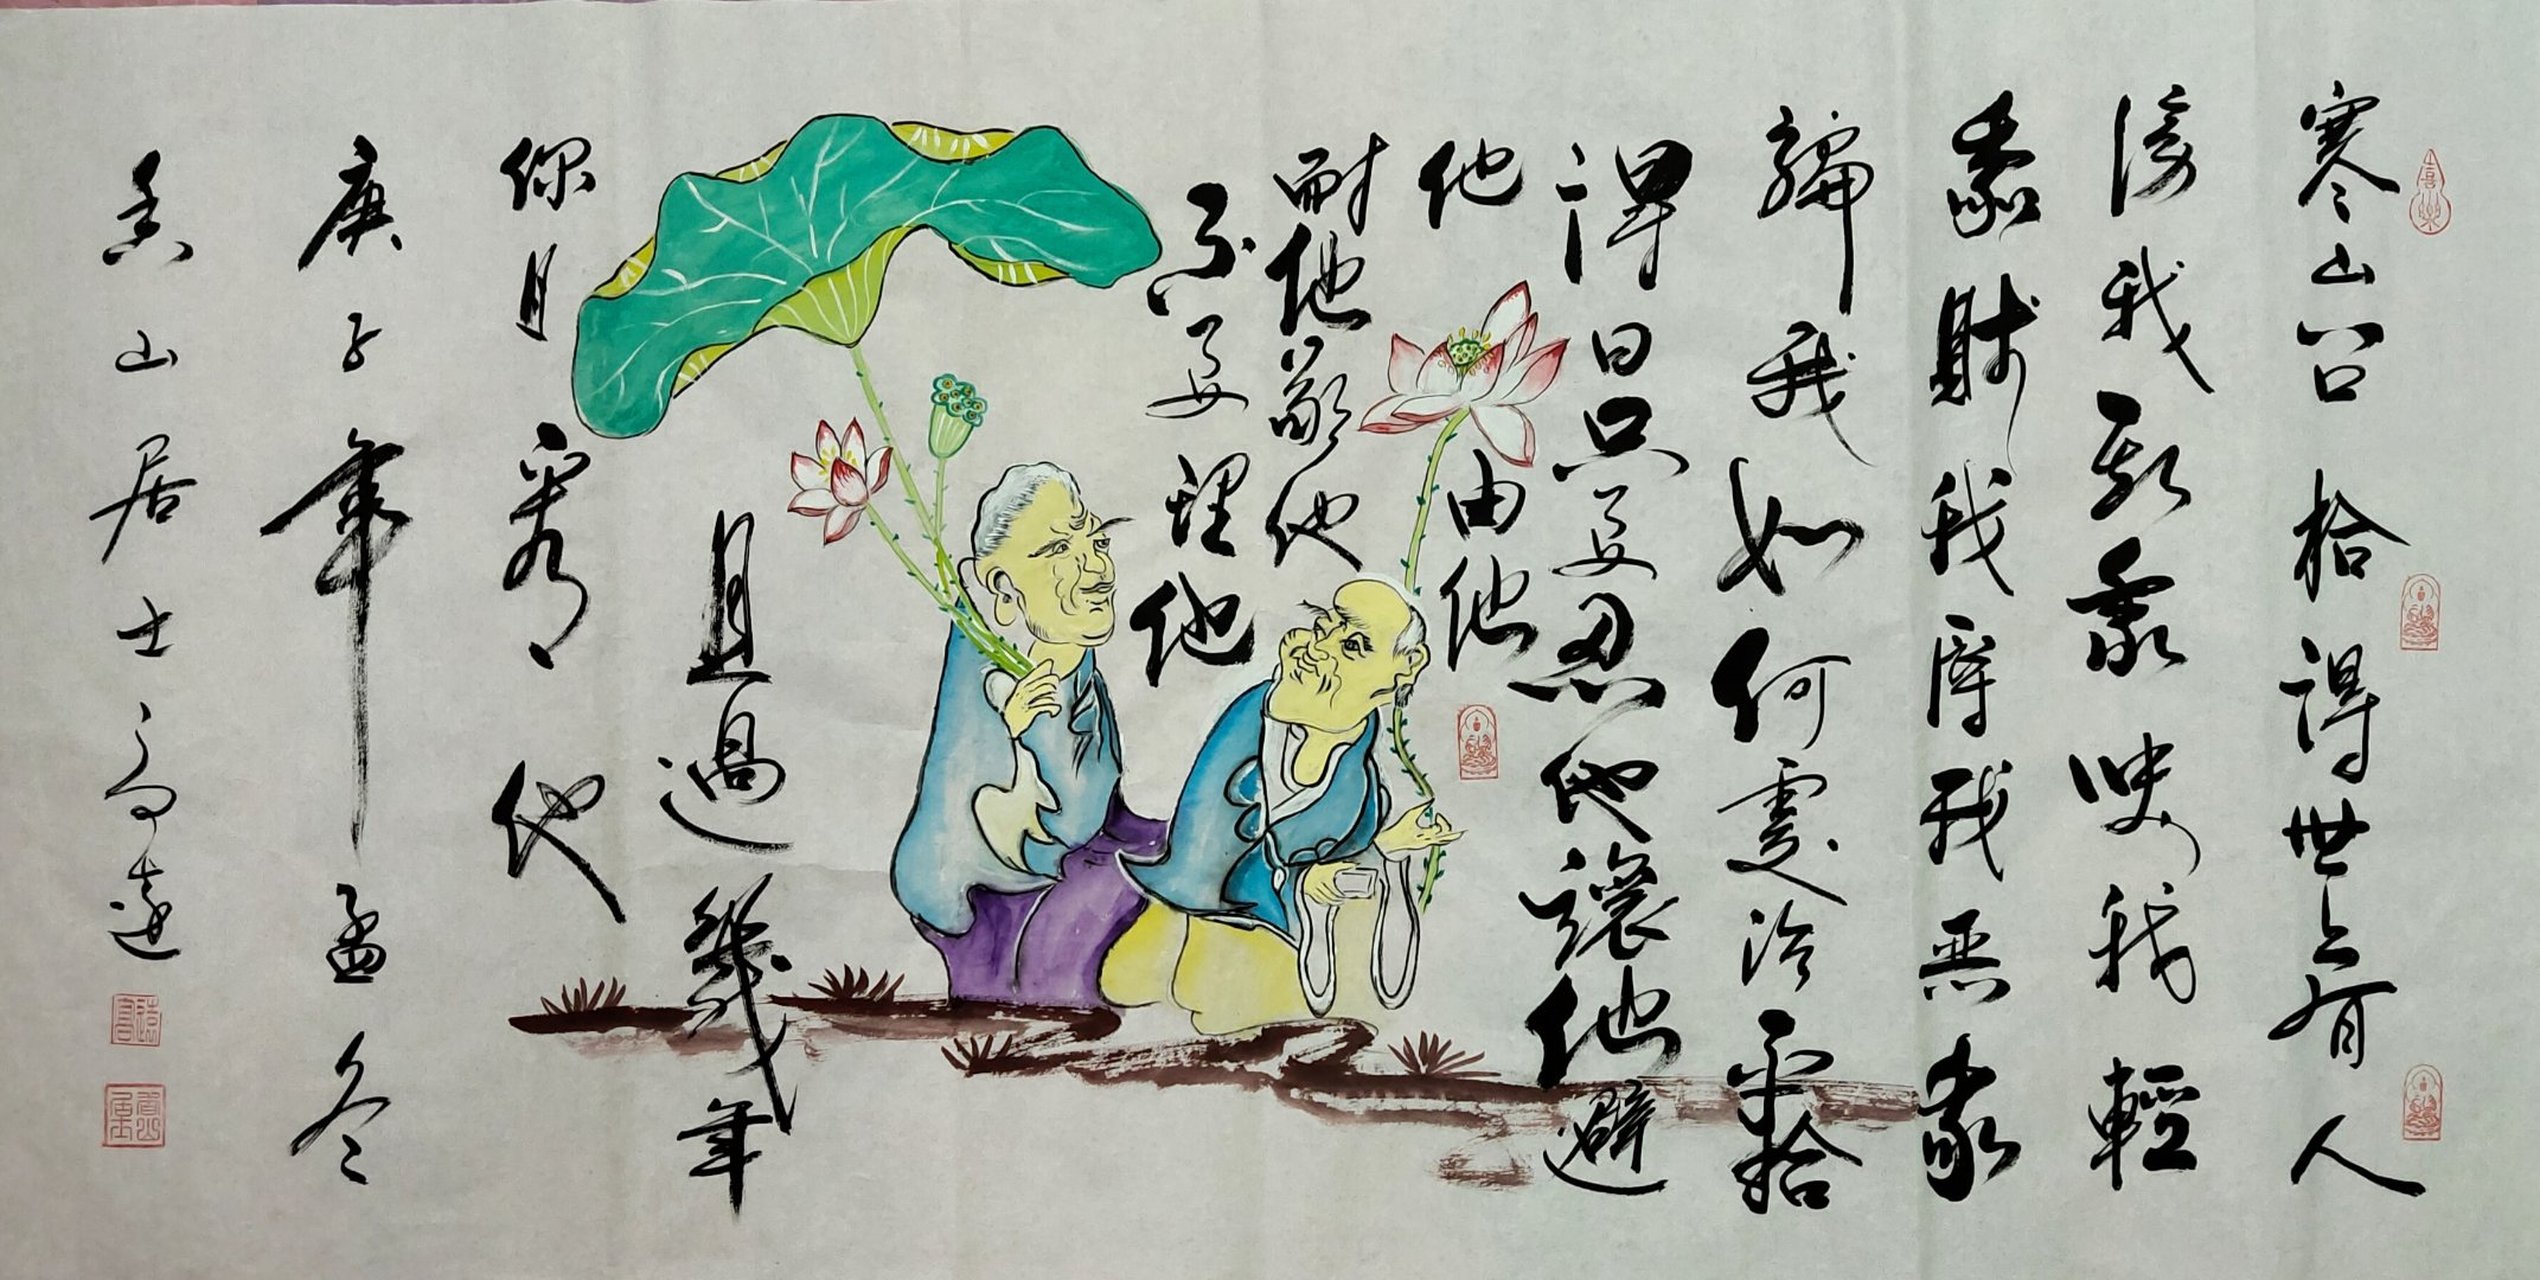 喜樂
寒山問拾得世上有人
謗我欺我笑我輕
我賤我辱我惡我
騙我如何處治乎拾
得曰只要忍他讓他避
他由他
耐他敬他
不要理他
且過幾年
你且看他
庚子年孟冬
香山居士高遠